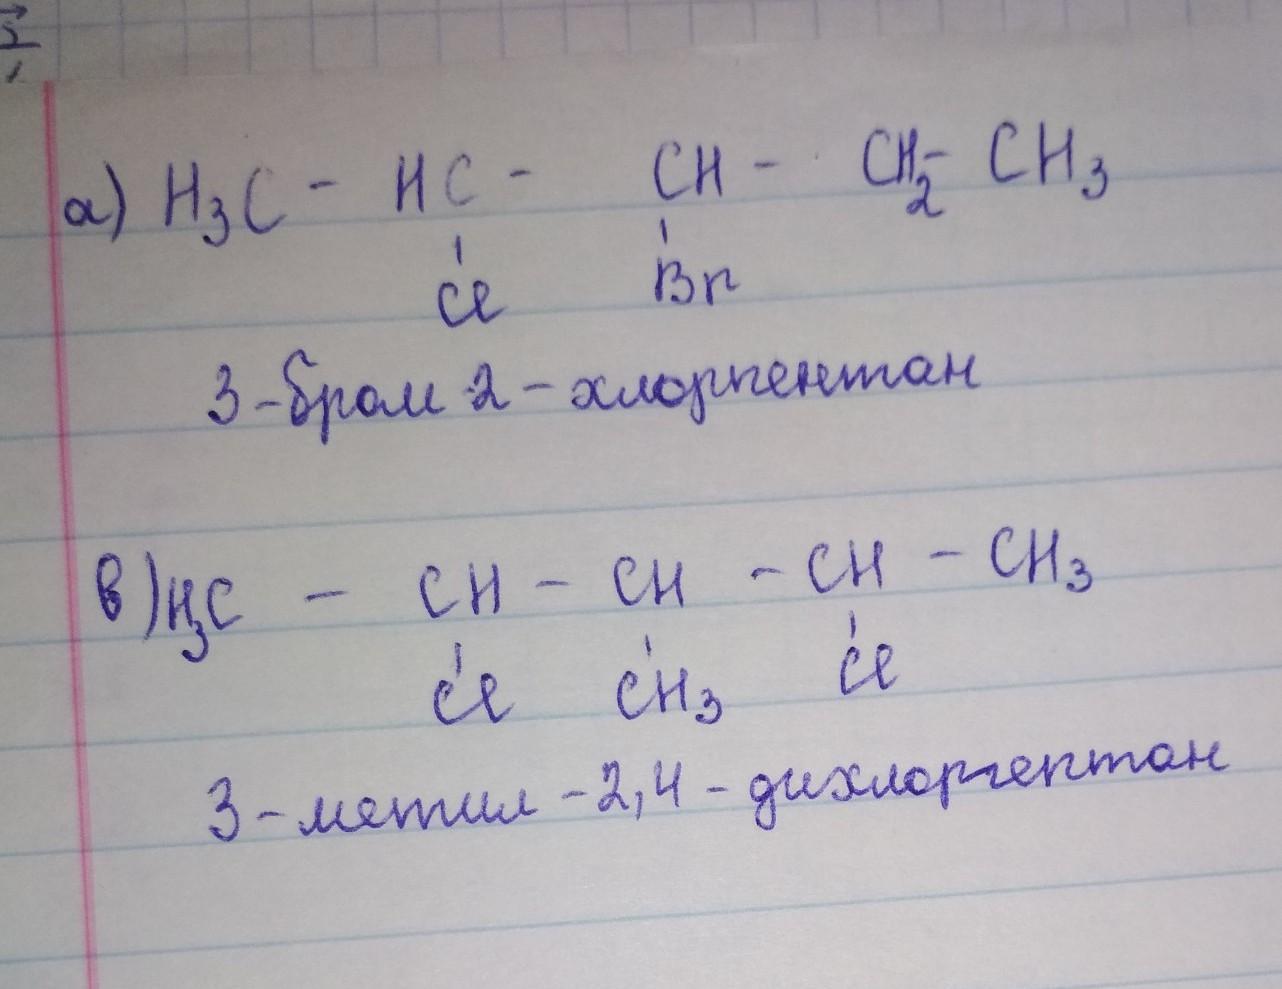 а) H3C - HC - CH - CH2- CH3
Cl Br
3-бром 2-хлорпентан
в) H3C - CH - CH - CH - CH3
Cl CH3 Cl
3-метил-2,4-дихлоргептан